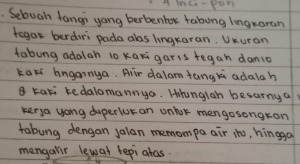 Sebuah tangi yang berbentuk tabung lingkaran
tegak berdiri pada alas lingkaran. Ukuran
tabung adalah 10 kaki garis tegah dan 10
kaki tingginya. Air dalam tangki adalah
8 kaki kedalamannya. Hitunglah besarnya
kerja yang diperlukan untuk mengosongkan
tabung dengan jalan memompa air itu, hingga
mengalir lewat tepi atas.